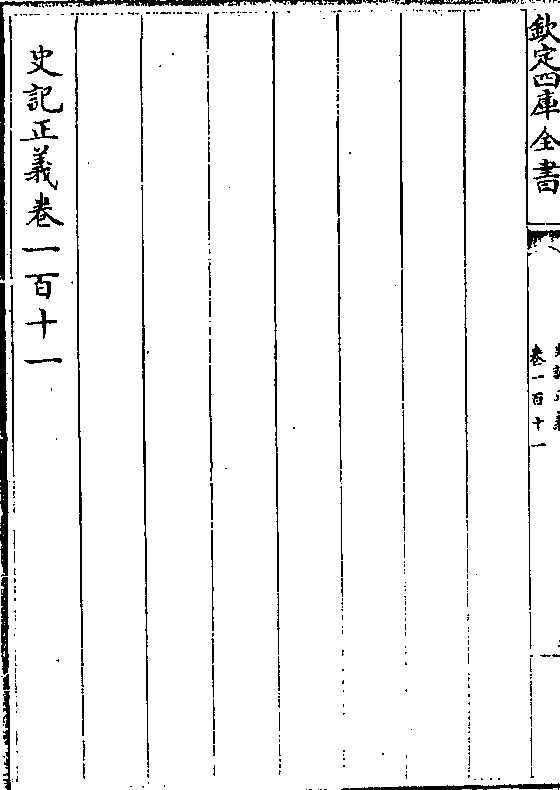 欽定四庫全書
史記正義
卷一百十一
史記正義卷一百十一